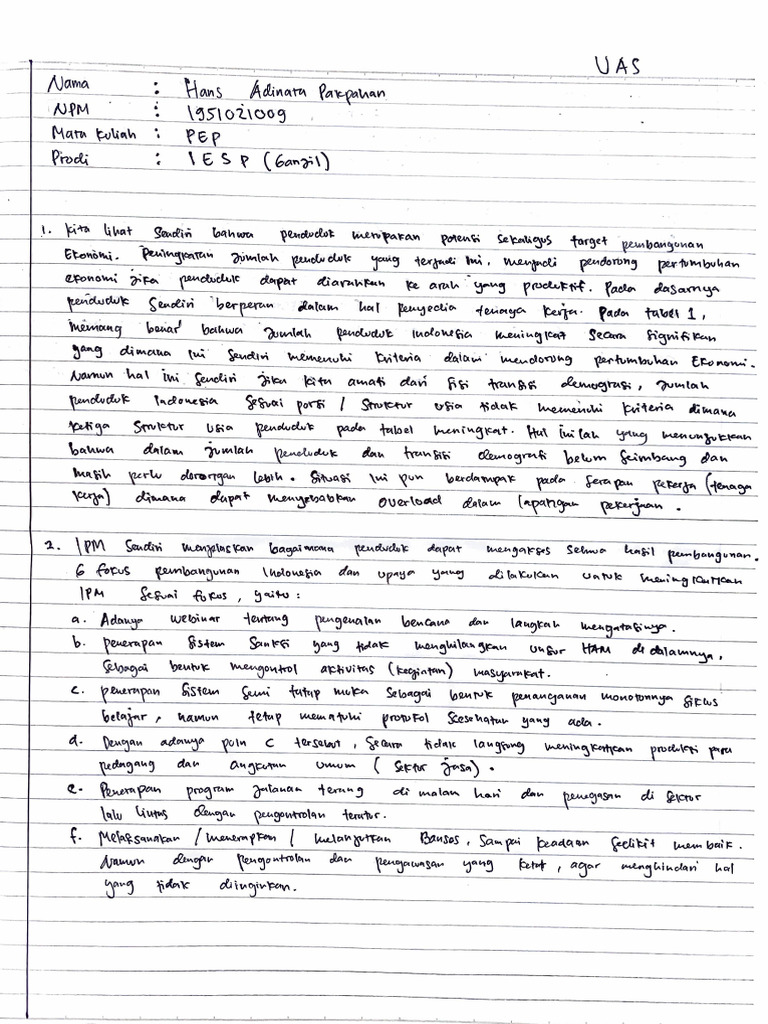 UAS
Nama : Hans Adinata Pakpahan
NPM : 1951021009
Mata kuliah : PEP
Prodi : IESP (Ganjil)
1. Kita lihat sendiri bahwa penduduk merupakan potensi sekaligus target pembangunan
Ekonomi. Peningkatan jumlah penduduk yang terjadi ini, menjadi pendorong pertumbuhan
ekonomi jika penduduk dapat diarahkan ke arah yang produktif. Pada dasarnya
penduduk sendiri berperan dalam hal penyedia tenaga kerja. Pada tabel 1,
memang benar bahwa jumlah penduduk Indonesia meningkat secara signifikan
yang dimana ini sendiri memenuhi kriteria dalam mendorong pertumbuhan Ekonomi.
Namun hal ini sendiri jika kita amati dari sisi transisi demografi, jumlah
penduduk Indonesia sesuai porsi / struktur usia tidak memenuhi kriteria dimana
ketiga struktur usia penduduk pada tabel meningkat. Hal inilah yang menunjukkan
bahwa dalam jumlah penduduk dan transisi demografi belum seimbang dan
masih perlu dorongan lebih. Situasi ini pun berdampak pada serapan pekerja (tenaga
kerja) dimana dapat menyebabkan overload dalam lapangan pekerjaan.
2. IPM sendiri menjelaskan bagaimana penduduk dapat mengakses semua hasil pembangunan.
6 fokus pembangunan Indonesia dan upaya yang dilakukan untuk meningkatkan
IPM sesuai fokus, yaitu :
a. Adanya webinar tentang pengenalan bencana dan langkah mengatasinya.
b. penerapan sistem sanksi yang tidak menghilangkan unsur HAM di dalamnya,
sebagai bentuk mengontrol aktivitas (kegiatan) masyarakat.
c. penerapan sistem semi tatap muka sebagai bentuk penanganan monotonnya siklus
belajar, namun tetap mematuhi protokol kesehatan yang ada.
d. Dengan adanya poin c tersebut, secara tidak langsung meningkatkan produkti para
pedagang dan angkutan umum (sektor jasa).
e. Penerapan program jalanan terang di malam hari dan penegasan di sektor
lalu lintas dengan pengontrolan teratur.
f. Melaksanakan / menerapkan / melanjutkan Bansos, sampai keadaan sedikit membaik.
Namun dengan pengontrolan dan pengawasan yang ketat, agar menghindari hal
yang tidak diinginkan.